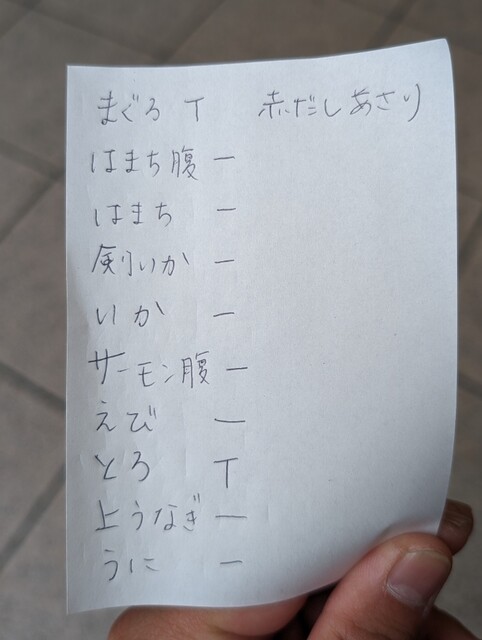 まぐろ T 赤だしあさり
はまち腹 一
はまち 一
剣いか 一
いか 一
サーモン腹 一
えび 一
とろ T
上うなぎ 一
うに 一